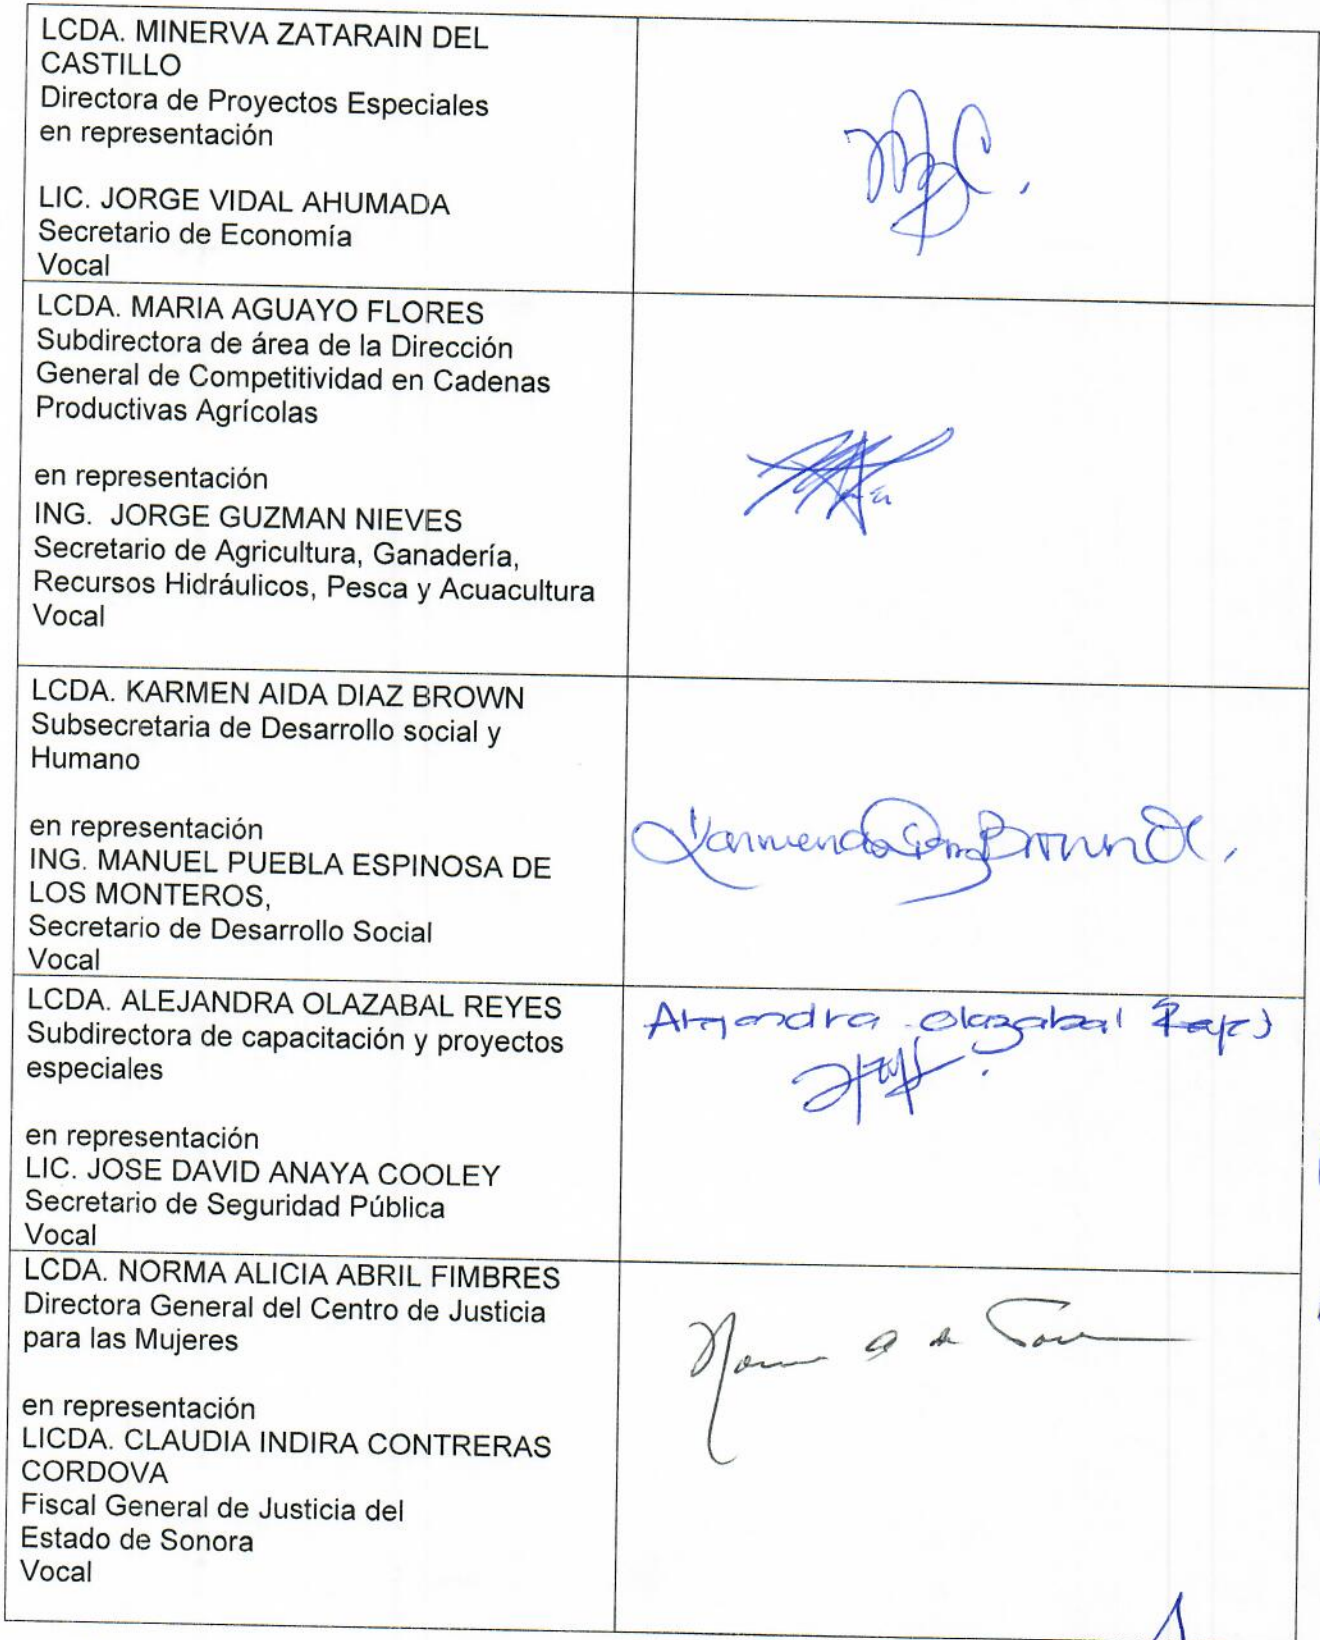 LCDA. MINERVA ZATARAIN DEL
CASTILLO
Directora de Proyectos Especiales
en representación
LIC. JORGE VIDAL AHUMADA
Secretario de Economía
Vocal
LCDA. MARIA AGUAYO FLORES
Subdirectora de área de la Dirección
General de Competitividad en Cadenas
Productivas Agrícolas
en representación
ING. JORGE GUZMAN NIEVES
Secretario de Agricultura, Ganadería,
Recursos Hidráulicos, Pesca y Acuacultura
Vocal
LCDA. KARMEN AIDA DIAZ BROWN
Subsecretaria de Desarrollo social y
Humano
en representación
ING. MANUEL PUEBLA ESPINOSA DE
LOS MONTEROS,
Secretario de Desarrollo Social
Vocal
LCDA. ALEJANDRA OLAZABAL REYES
Subdirectora de capacitación y proyectos
especiales
en representación
LIC. JOSE DAVID ANAYA COOLEY
Secretario de Seguridad Pública
Vocal
Alejandra Olazabal Reyes
LCDA. NORMA ALICIA ABRIL FIMBRES
Directora General del Centro de Justicia
para las Mujeres
en representación
LICDA. CLAUDIA INDIRA CONTRERAS
CORDOVA
Fiscal General de Justicia del
Estado de Sonora
Vocal